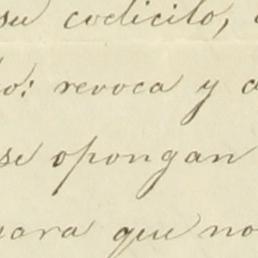 su codicilo,
lo: revoca y a
se opongan
para que no